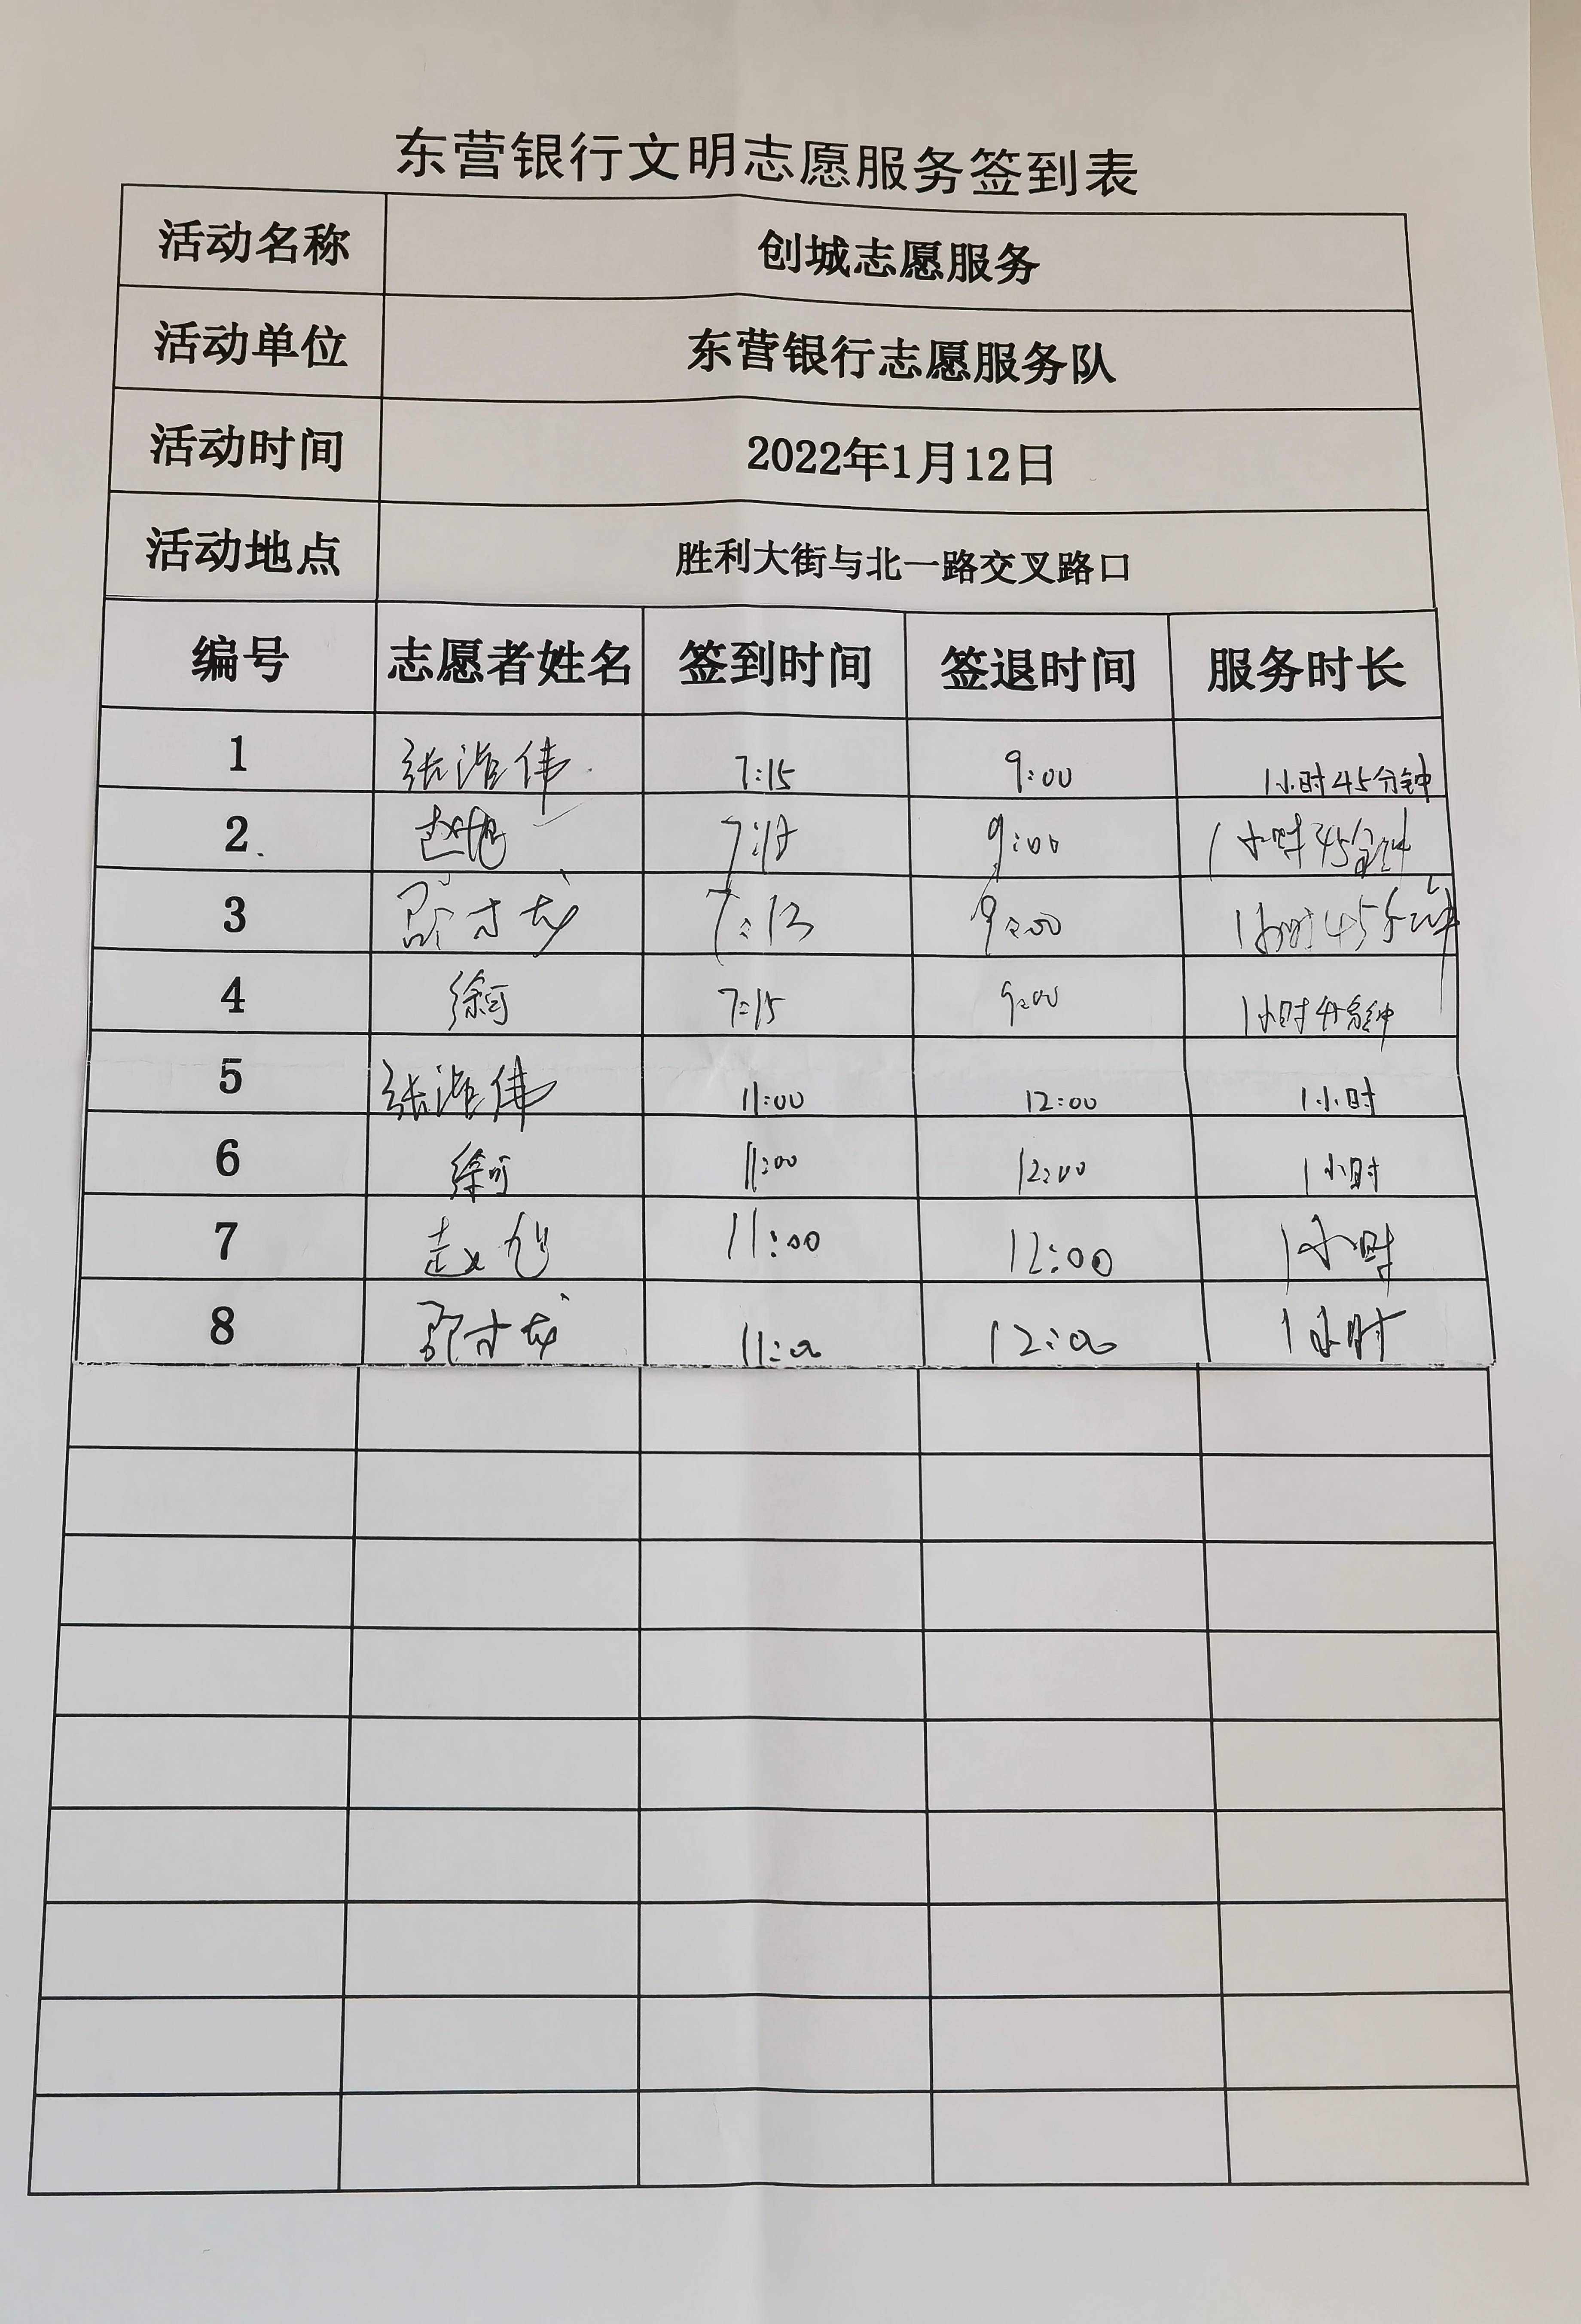 东营银行文明志愿服务签到表
活动名称 创城志愿服务
活动单位 东营银行志愿服务队
活动时间 2022年1月12日
活动地点 胜利大街与北一路交叉路口
编号 志愿者姓名 签到时间 签退时间 服务时长
1 张浩伟 7:15 9:00 1小时45分钟
2 赵旭 9:00 1小时45分钟
3 7:13 9:00 1小时45分钟
4 徐可 7:15 9:00 1小时45分钟
5 张浩伟 11:00 12:00 1小时
6 徐可 11:00 12:00 1小时
7 赵旭 11:00 12:00 1小时
8 11:00 12:00 1小时